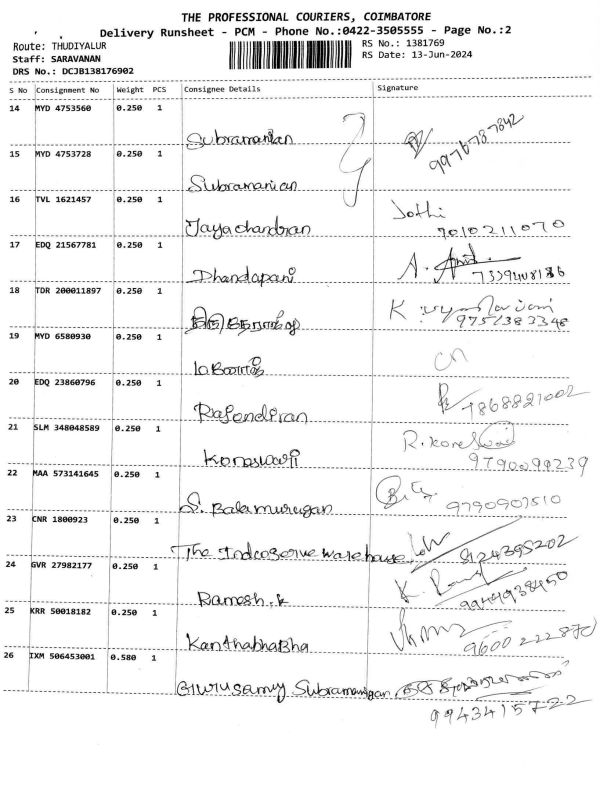 THE PROFESSIONAL COURIERS, COIMBATORE
Delivery Runsheet - PCM - Phone No.:0422-3505555 - Page No.:2
Route: THUDIYALUR
RS No.: 1381769
Staff: SARAVANAN
RS Date: 13-Jun-2024
DRS No.: DCJB138176902
S No Consignment No Weight PCS Consignee Details Signature
14 MYD 4753560 0.250 1
Subramanian 9976787842
15 MYD 4753728 0.250 1
Subramanian
16 TVL 1621457 0.250 1 Jothi
Jayachandran 7010211070
17 EDQ 21567781 0.250 1
Dhandapani A.
18 TDR 200011897 0.250 1 K
9751383348
19 MYD 6580930 0.250 1
20 EDQ 23860796 0.250 1
Rajendiran 7868821002
21 SLM 348048589 0.250 1 R.
Koneswari 9790099239
22 MAA 573141645 0.250 1
S. Balamurugan 9790907510
23 CNR 1800923 0.250 1
The Indcoserve warehouse, 9124395202
24 GVR 27982177 0.250 1 K.
Ramesh.k 9944938450
25 KRR 50018182 0.250 1
KanthabhaBha
26 IXM 506453001 0.580 1
Gurusamy Subramanigan
9943415722